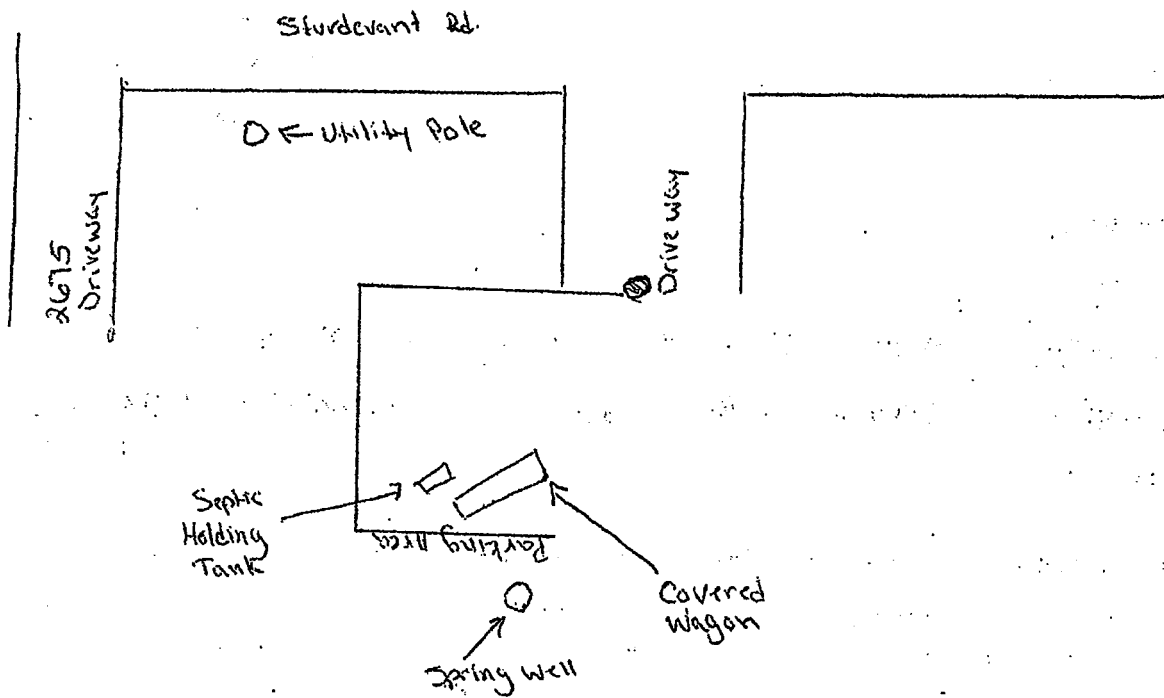 Sturdevant Rd.
Utility Pole
2675
Driveway
Driveway
Septic
Holding
Tank
Parking Area
Covered
Wagon
Spring Well